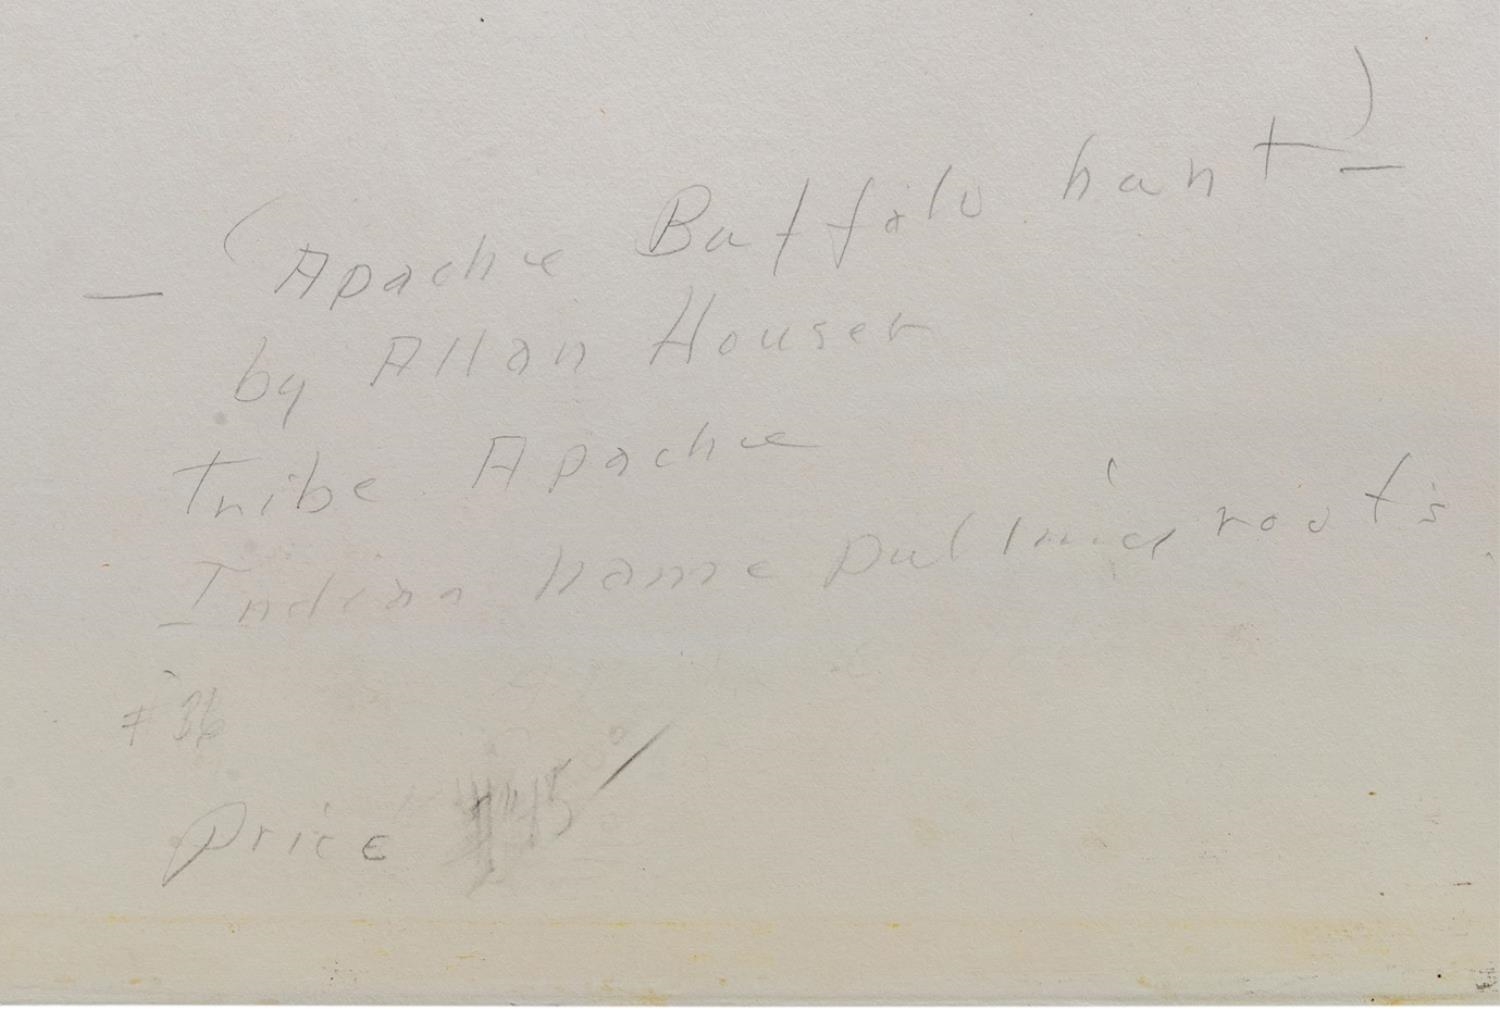 — (Apache Buffalo hunt) —
by Allan Houser
tribe Apache
Indian name pulling root's
#36
price $45